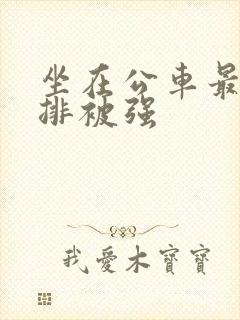 坐在公車最
排被强
我愛木寶寶